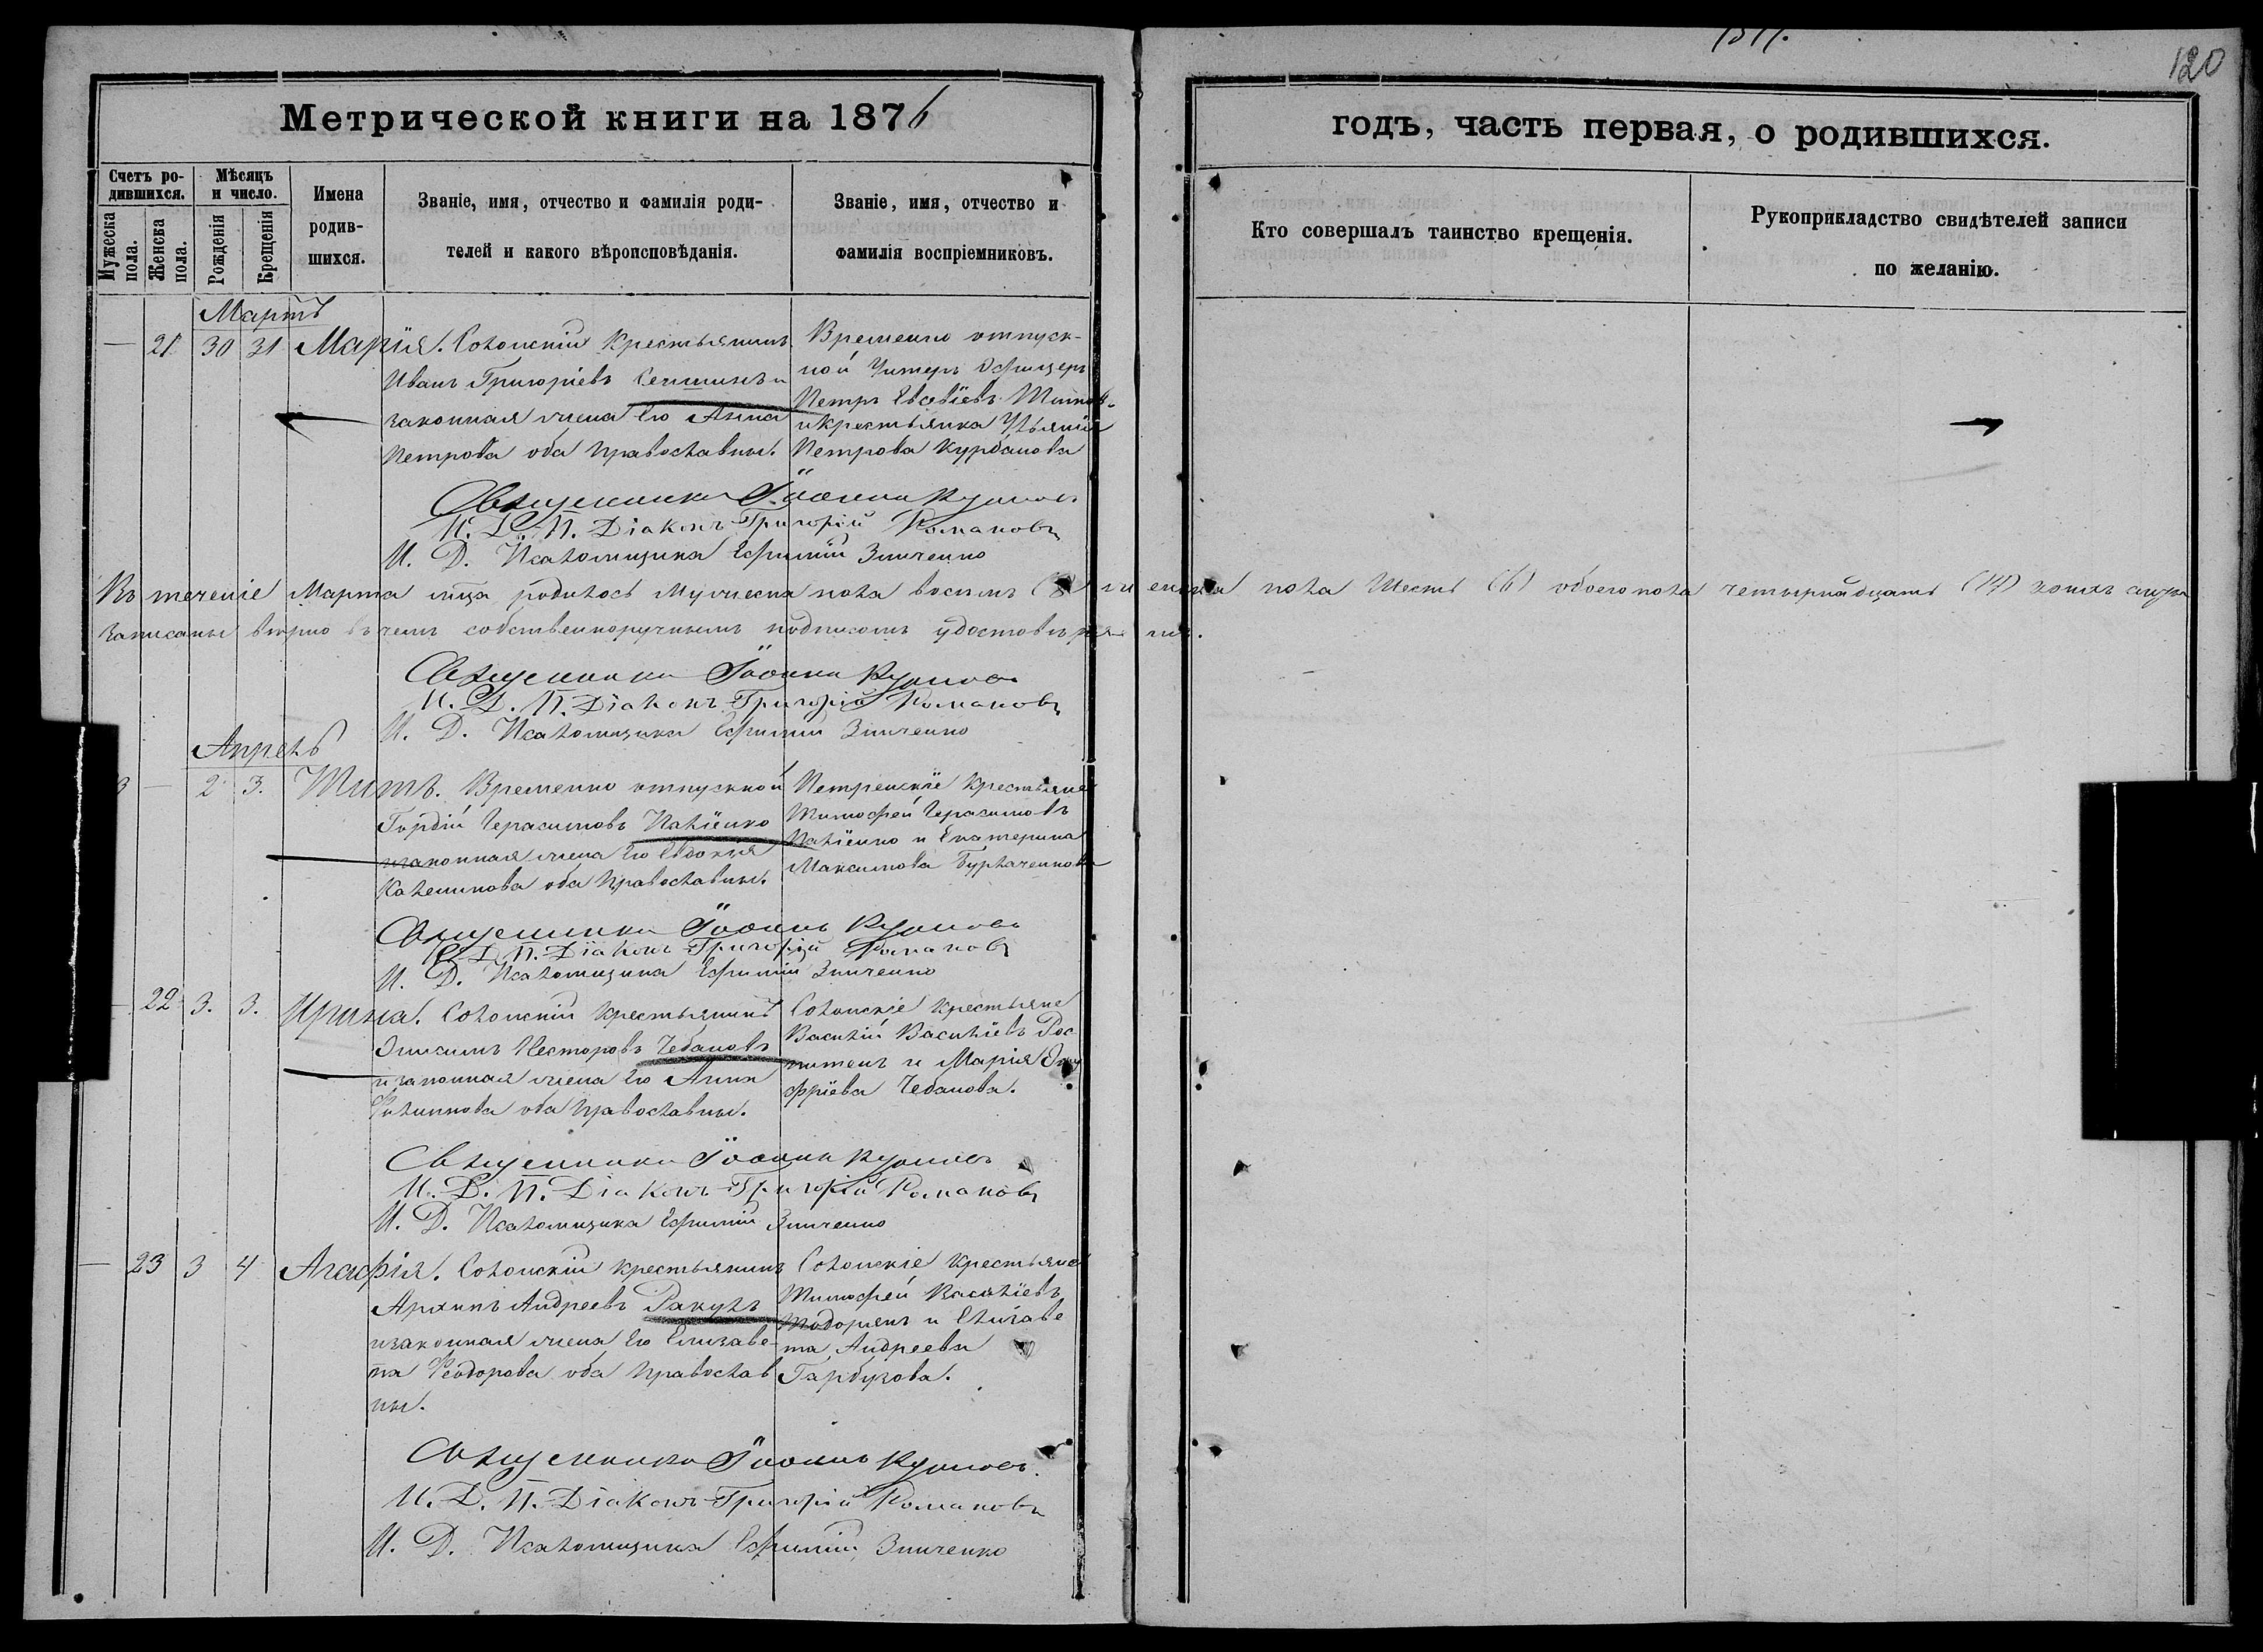 1877.
120
Метрической книги на 1876
годъ, часть первая, о родившихся.
Счетъ ро-
дившихся.
Мужеска
пола.
Женска
пола.
Мѣсяцъ
и число.
Рожденія
Крещенія
Имена
родив-
шихся.
Званіе, имя, отчество и фамилія роди-
телей и какого вѣроисповѣданія.
Званіе, имя, отчество и
фамилія воспріемниковъ.
Кто совершалъ таинство крещенія.
Рукоприкладство свидѣтелей записи
по желанію.
Мартъ
— 21 30 31 Марія.
Солонскій крестьянинъ
Иванъ Григоріевъ
законная жена его Анна
Петрова оба православны.
Временно отпуск-
ной Унтеръ Офицеръ
Петръ Евсевіевъ
и крестьянка Ульянія
Петрова Курбанова
Священникъ Іоаннъ
И. Д. П. Діаконъ Григорій Романовъ
И. Д. Псаломщика Ефимій Зинченко
Въ теченіе Марта м-ца родилось Мужеска пола восемь (8) женска пола Шесть (6) обоего пола четырнадцать (14)
записаны вѣрно въ чемъ собственноручнымъ подписомъ удостовѣряемъ.
Священникъ Іоаннъ
И. Д. П. Діаконъ Григорій Романовъ
И. Д. Псаломщика Ефимій Зинченко
Апрель
3 — 2 3. Титъ.
Временно отпускной
Гордій Герасимовъ Палієнко
и законная жена его Евдокія
оба православны.
Петренскіе крестьяне
Тимофей Герасимовъ
Палієнко и Екатерина
Максимова Бурлаченкова
Священникъ Іоаннъ
И. Д. П. Діаконъ Григорій Романовъ
И. Д. Псаломщика Ефимій Зинченко
— 22 3. 3. Ирина.
Солонскій крестьянинъ
Онисимъ Несторовъ Чебановъ
и законная жена его Анна
Филиппова оба православны.
Солонскіе крестьяне
Василій Василіевъ Рос
и Марія Ону
фріева Чебанова.
Священникъ Іоаннъ
И. Д. П. Діаконъ Григорій Романовъ
И. Д. Псаломщика Ефимій Зинченко
— 23 3 4 Агафія.
Солонскій крестьянинъ
Архипъ Андреевъ Ракулъ
и законная жена его Елизаве-
та Феодорова оба православ
ны.
Солонскіе крестьяне
Тимофей Василіевъ
Тодорикъ и Елизаве
та Андреева
Гарбузова.
Священникъ Іоаннъ
И. Д. П. Діаконъ Григорій Романовъ
И. Д. Псаломщика Ефимій Зинченко